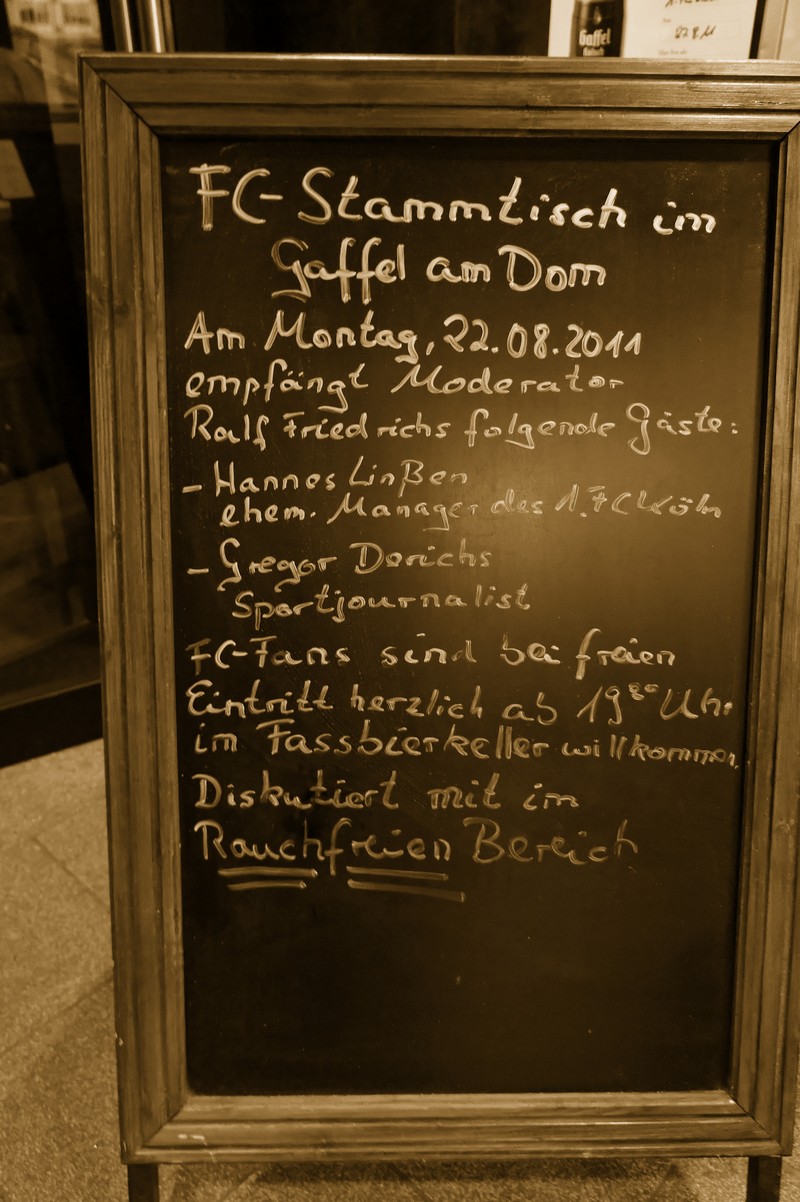 Gaffel
22.8.11
FC-Stammtisch im
Gaffel am Dom
Am Montag, 22.08.2011
empfängt Moderator
Ralf Friedrichs folgende Gäste:
- Hannes Linßen
ehem. Manager des 1. FC Köln
- Gregor Derichs
Sportjournalist
FC-Fans sind bei freien
Eintritt herzlich ab 19 Uhr
im Fassbierkeller willkommen
Diskutiert mit im
Rauchfreien Bereich